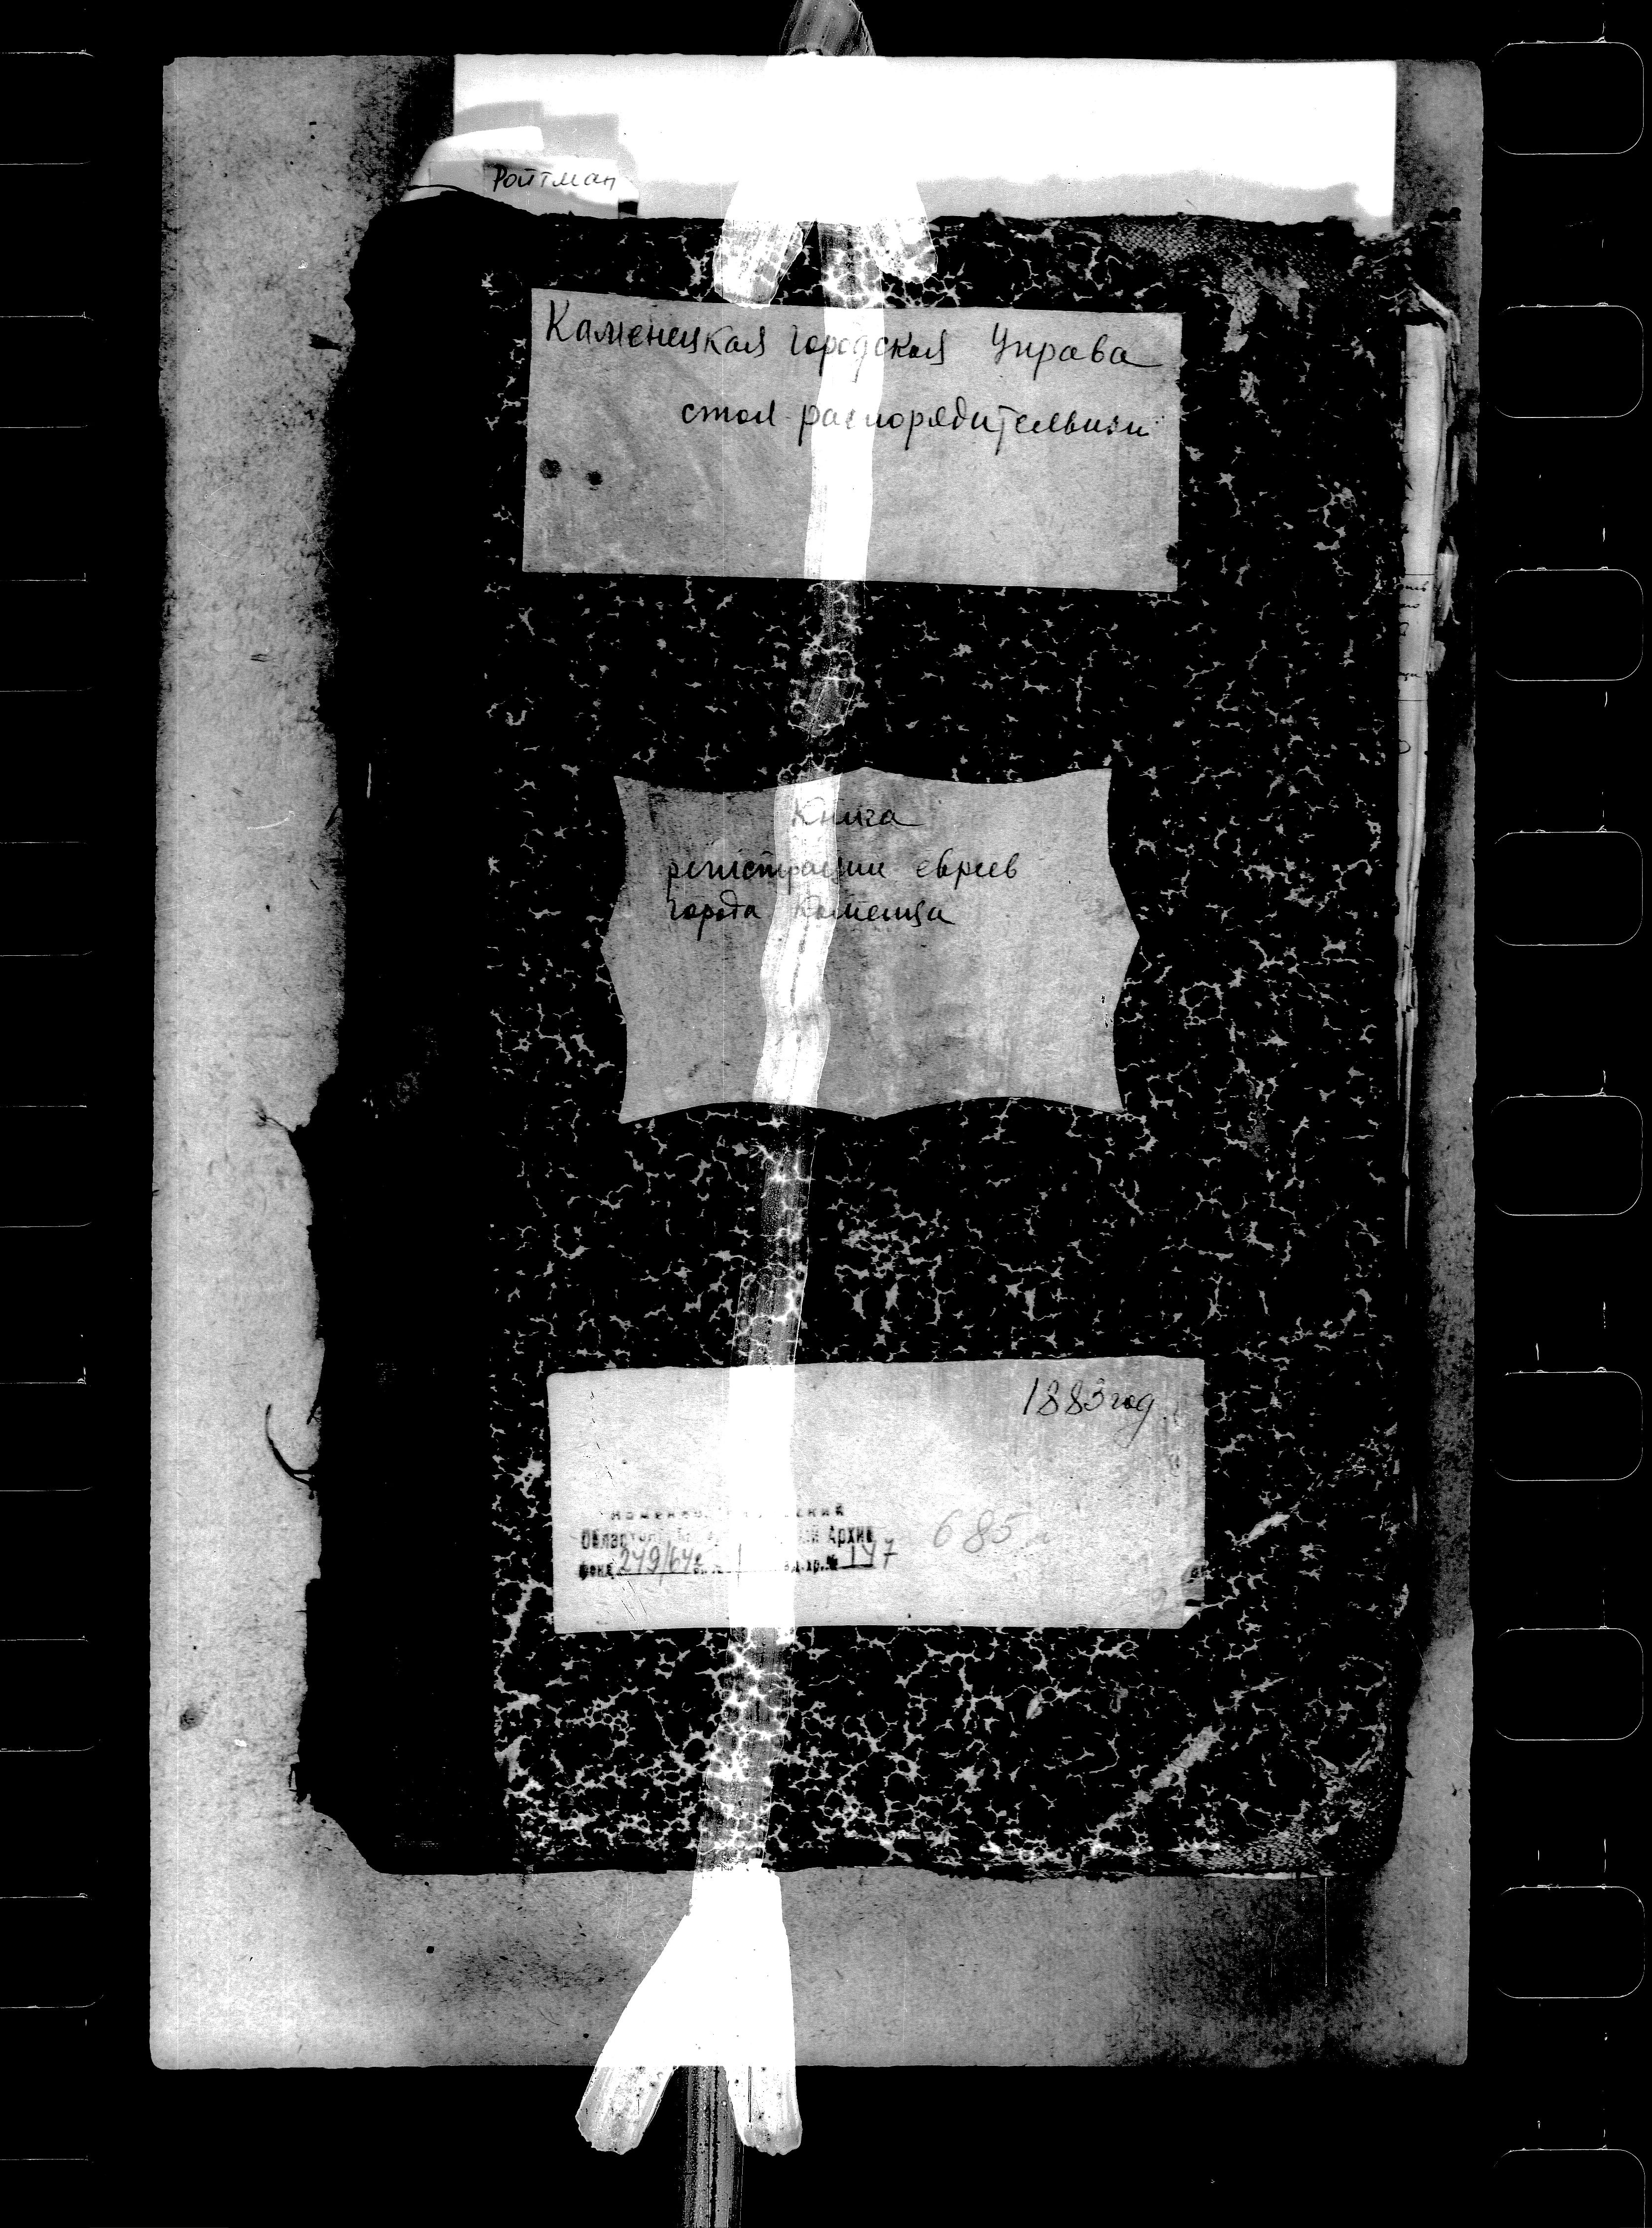 Ройтман
Каменецкая городская Управа
стол распорядительный
Книга
регистрации евреев
города Каменца
1883 год
Архив
685
фонд 249/642 1 ед.хр.№ 147